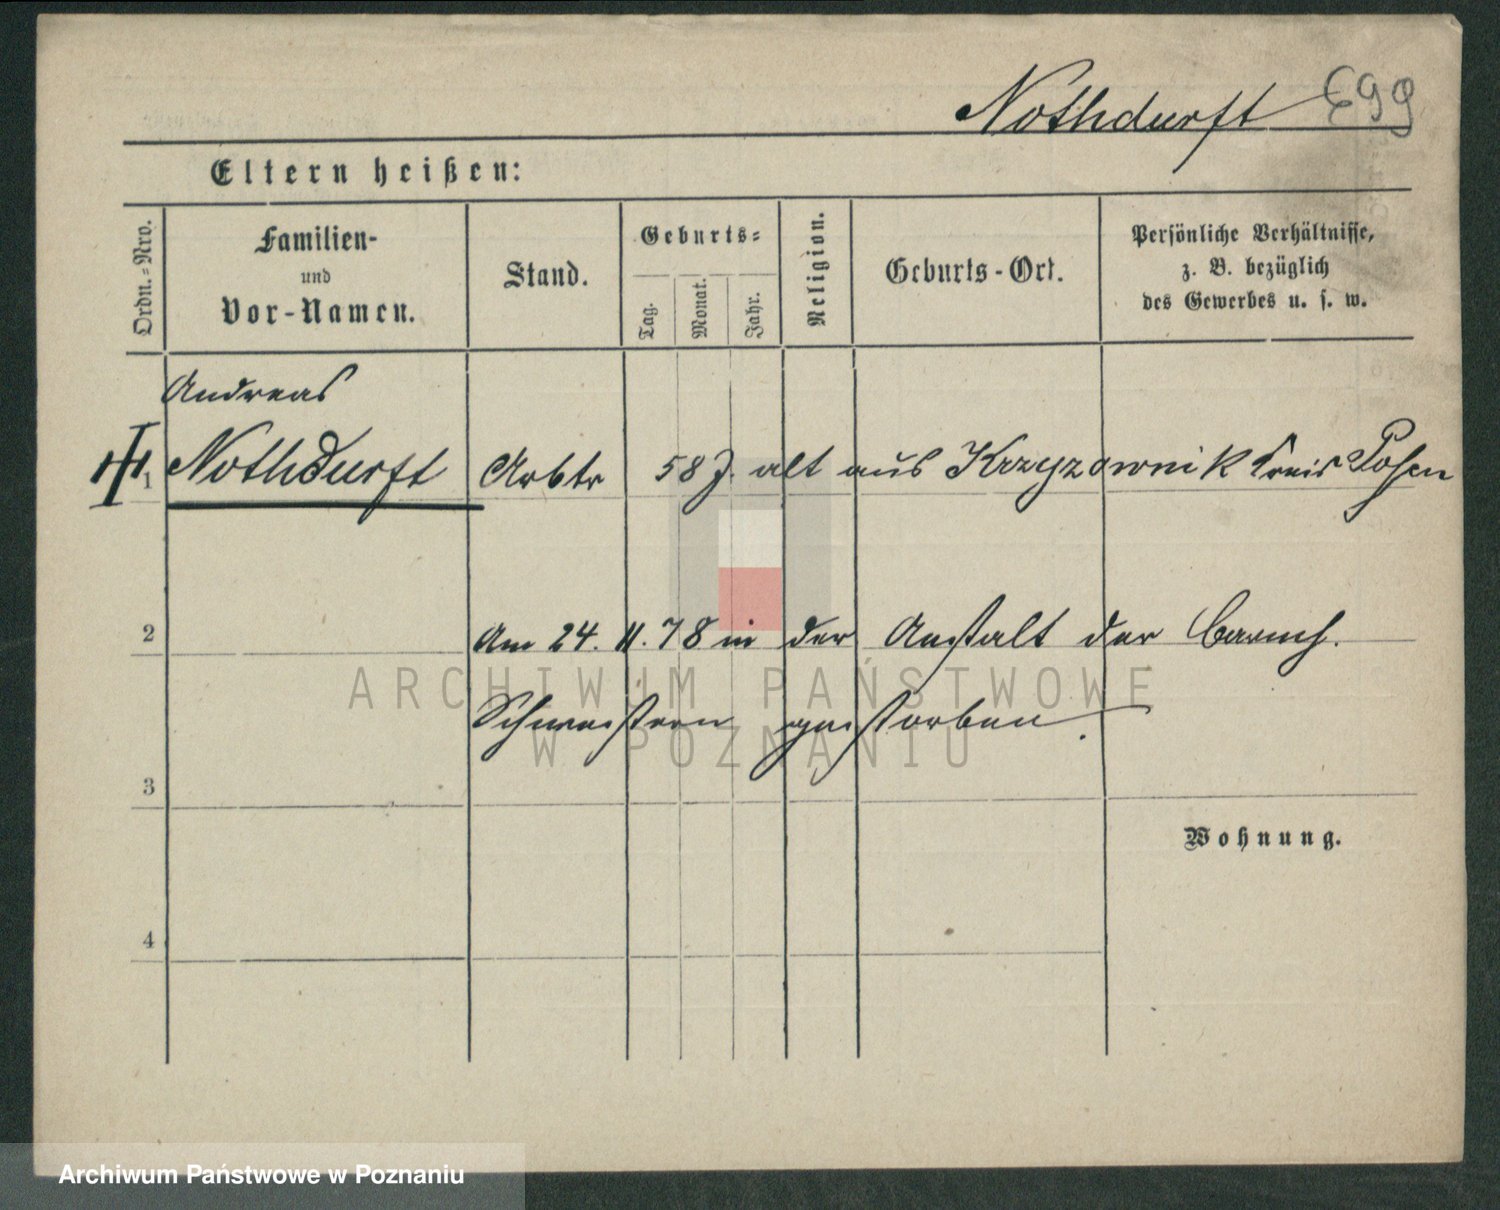 Nothdurft E99
Eltern heißen:
Ordn.=Nro.
Familien-
und
Vor-Namen.
Stand.
Geburts=
Tag.
Monat.
Jahr.
Religion.
Geburts-Ort.
Persönliche Verhältnisse,
z. B. bezüglich
des Gewerbes u. s. w.
Andreas
1 Nothdurft Arbtr 58 J. alt aus Krzyzownik Kreis Posen
2 Am 24. 11. 78 in der Anstalt der barmh.
Schwestern gestorben.
3
Wohnung.
4
ARCHIWUM PAŃSTWOWE
W POZNANIU
Archiwum Państwowe w Poznaniu